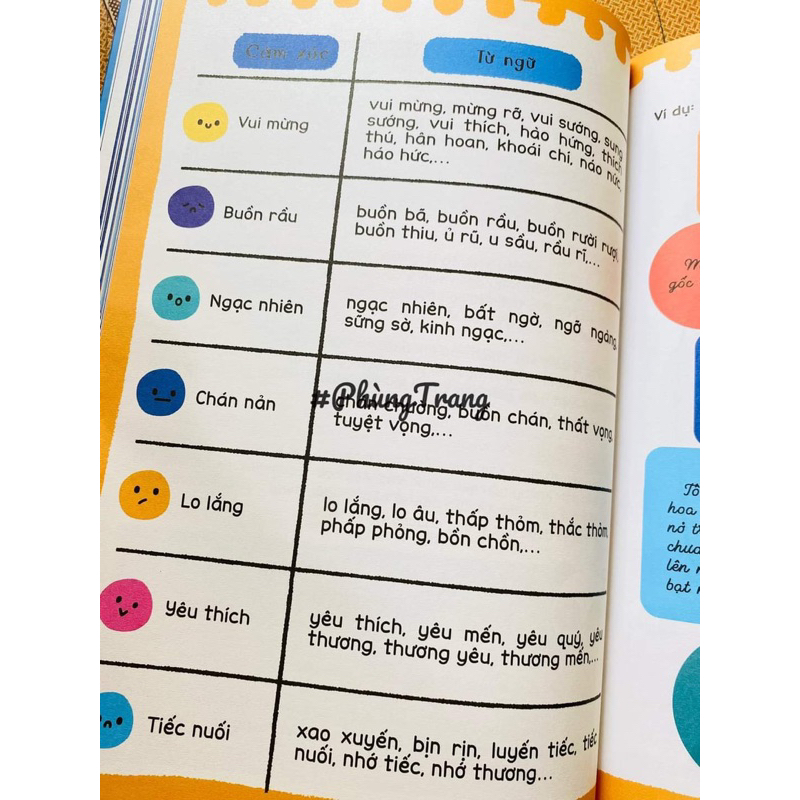 Cảm xúc
Từ ngữ
Vui mừng
vui mừng, mừng rỡ, vui sướng, sung
sướng, vui thích, hào hứng, thích
thú, hân hoan, khoái chí, náo nức,
háo hức,...
Buồn rầu
buồn bã, buồn rầu, buồn rười rượi,
buồn thiu, ủ rũ, u sầu, rầu rĩ,...
Ngạc nhiên
ngạc nhiên, bất ngờ, ngỡ ngàng,
sững sờ, kinh ngạc,...
#PhùngTrang
Chán nản
chán chường, buồn chán, thất vọng,
tuyệt vọng,...
Lo lắng
lo lắng, lo âu, thấp thỏm, thắc thỏm,
phấp phỏng, bồn chồn,...
Yêu thích
yêu thích, yêu mến, yêu quý, yêu
thương, thương yêu, thương mến,...
Tiếc nuối
xao xuyến, bịn rịn, luyến tiếc, tiếc
nuối, nhớ tiếc, nhớ thương...
Ví dụ:
gốc
Tô
hoa
nở
chưa
lên
bạt